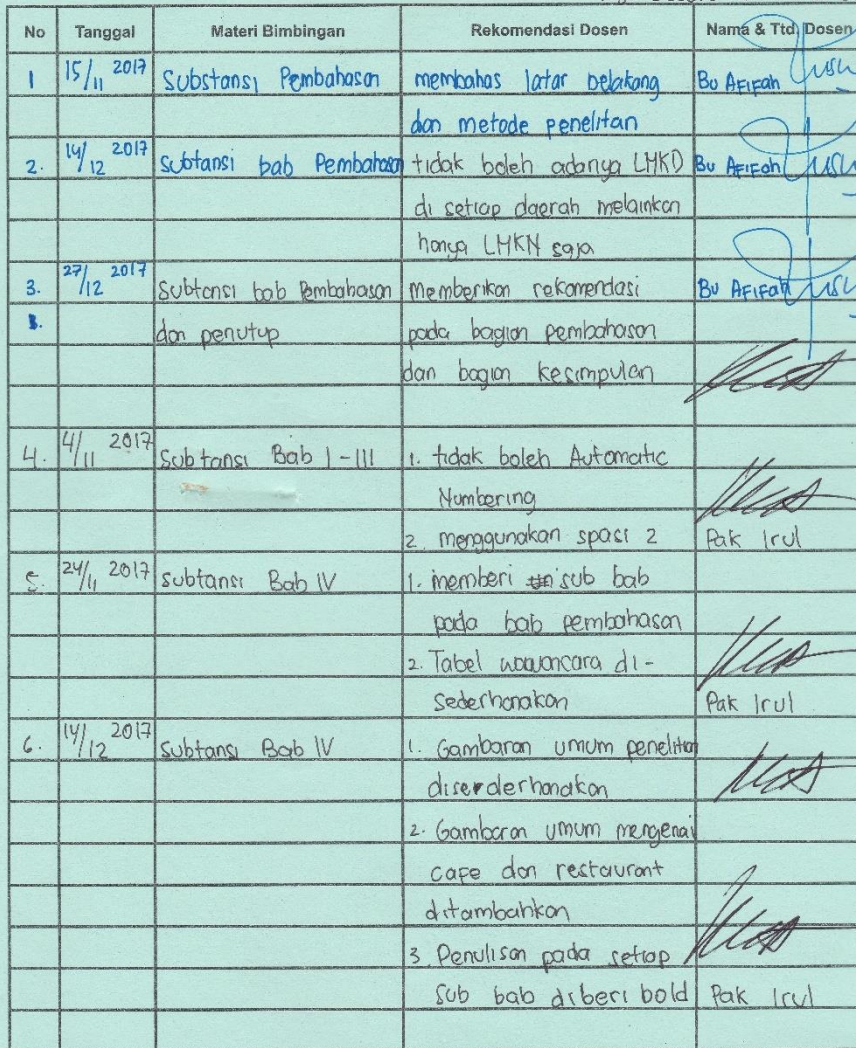 No Tanggal Materi Bimbingan Rekomendasi Dosen Nama & Ttd. Dosen
1 15/11 2017 Substansi Pembahasan membahas latar belakang Bu Afifah
dan metode penelitan
2. 14/12 2017 Subtansi bab Pembahasan tidak boleh adanya LMKD Bu Afifah
di setiap daerah melainkan
hanya LMKN saja
3. 27/12 2017 Subtansi bab Pembahasan memberikan rekomendasi Bu Afifah
dan penutup pada bagian pembahasan
dan bagian kesimpulan
4. 4/11 2017 Subtansi Bab I - III 1. tidak boleh Automatic
Numbering
2. menggunakan spasi 2 Pak Irul
5. 24/11 2017 Subtansi Bab IV 1. memberi sub bab
pada bab pembahasan
2. Tabel wawancara di-
sederhanakan Pak Irul
6. 14/12 2017 Subtansi Bab IV 1. Gambaran umum penelitian
diserderhanakan
2. Gambaran umum mengenai
cafe dan restaurant
ditambahkan
3. Penulisan pada setiap
sub bab diberi bold Pak Irul